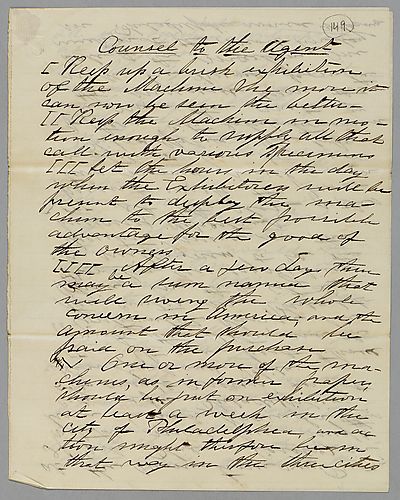 149
Counsel to the Agent
I Keep up a brisk exhibition
of the Machine the more it
can now be seen the better—
II Keep the Machine in mo-
tion enough to supply all that
call with various specimens
III Let the hours in the day
when the Exhibitors will be
present to display the ma-
chine to the best possible
advantage for the good of
the owners
IIII After a few days there
may a sum named that
will swing the whole
concern in America, and the
amount that should be
paid on the purchase
V One or more of the ma-
chines, as, in former paper,
should be put on exhibition
at least a week in the
city of Philadelphia, and ac
tion might therefore be in
that way in the three cities